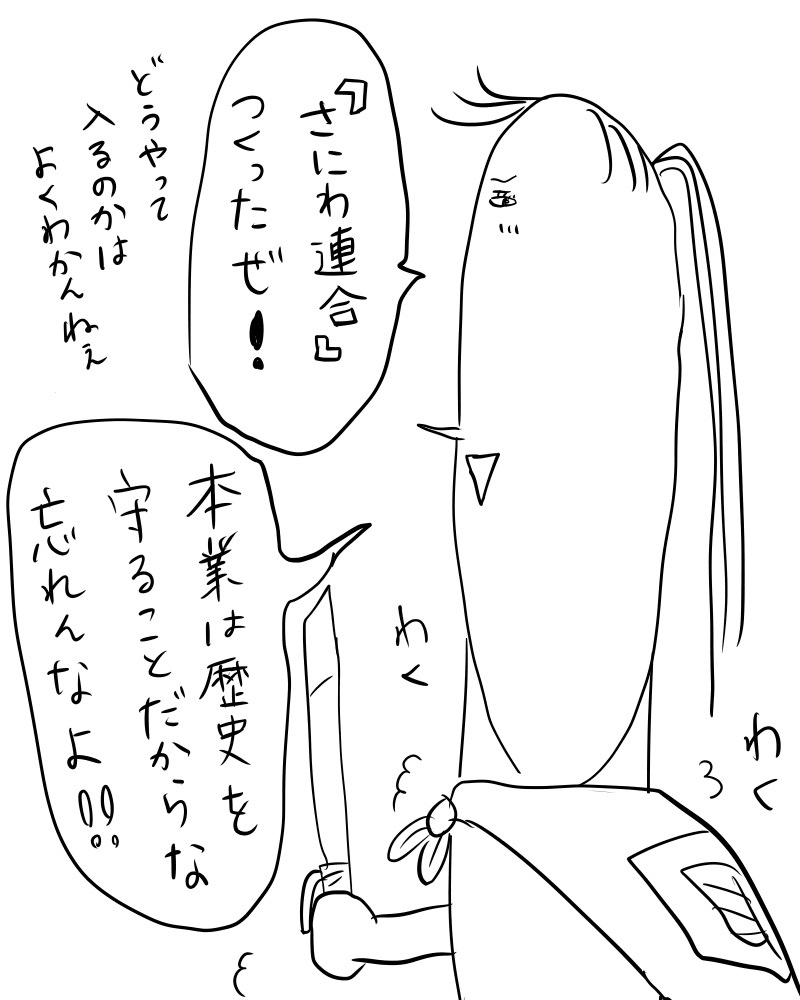 『さにわ連合』
つくったぜ!
どうやって
入るのかは
よくわかんねぇ
本業は歴史を
守ることだからな
忘れんなよ!!
わく
わく